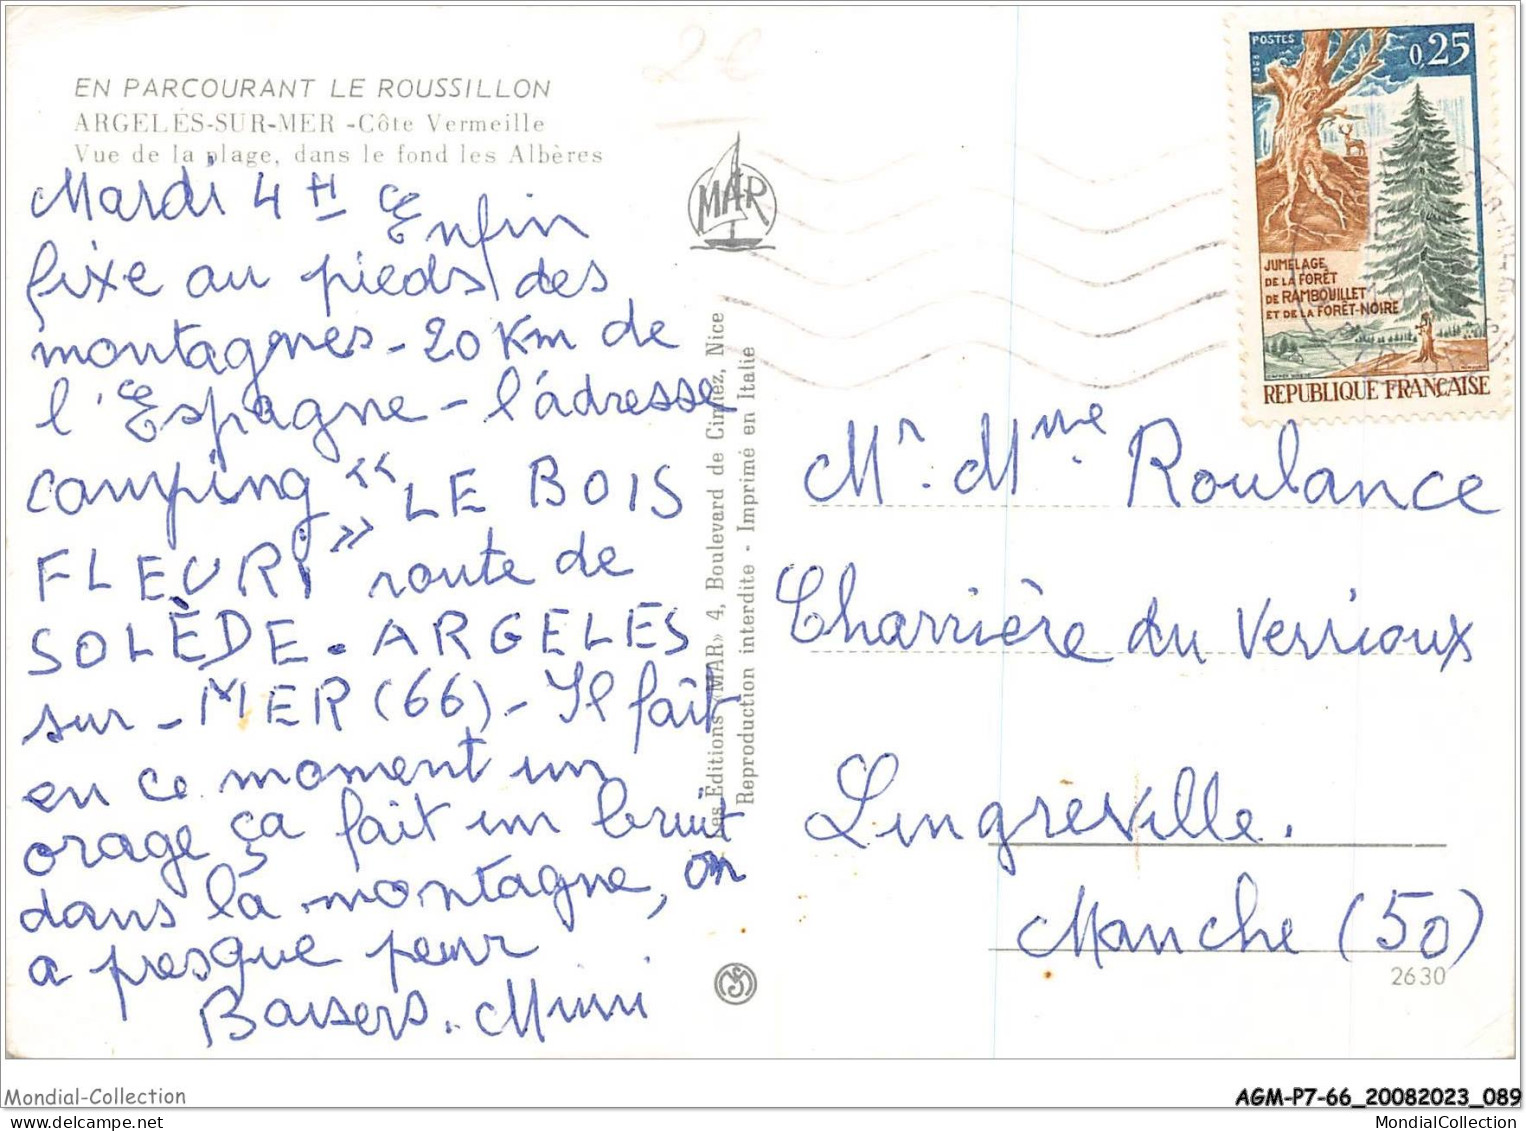 EN PARCOURANT LE ROUSSILLON
ARGELÈS-SUR-MER - Côte Vermeille
Vue de la plage, dans le fond les Albères
Mardi 4 H Enfin
fixe au pieds des
montagnes - 20 Km de
l'Espagne - l'adresse
camping "LE BOIS
FLEURI" route de
SOLÈDE - ARGELES
sur - MER (66) - Il fait
en ce moment un
orage ça fait un bruit
dans la montagne, on
a presque peur
Baisers. Mimi
2€
MAR
Les Editions «MAR» 4, Boulevard de Cimiez, Nice
Reproduction interdite - Imprimé en Italie
POSTES
1968
0,25
JUMELAGE
DE LA FORÊT
DE RAMBOUILLET
ET DE LA FORÊT-NOIRE
REPUBLIQUE FRANÇAISE
Mr. Mme Roulance
Charrière du Verrioux
Lingreville.
Manche (50)
2630
Mondial-Collection
AGM-P7-66_20082023_089
MondialCollection